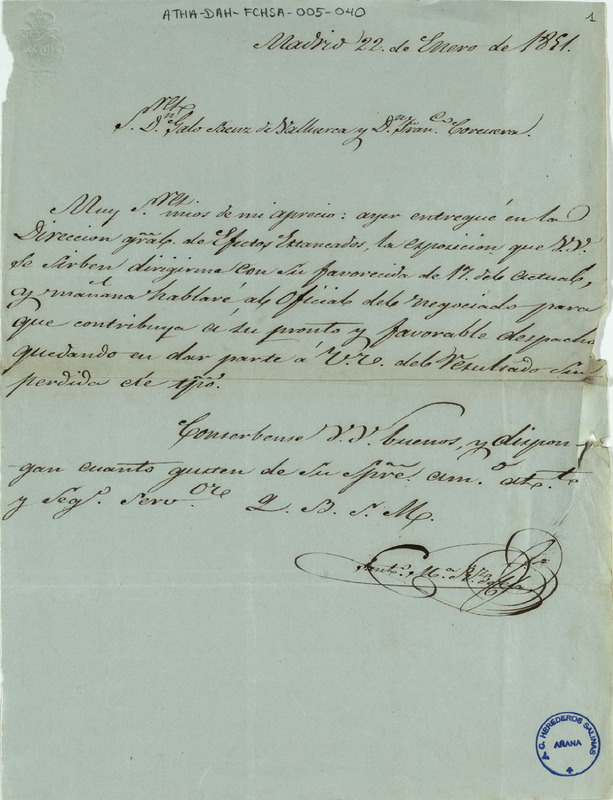 ATHA-DAH-FCHSA-005-040
1
Madrid 22. de Enero de 1851.
S.res D.n Galo Saenz de Valluerca y D.n Fran.co Corcuera.
Muy S.res mios de mi aprecio: ayer entregué en la
Direccion gral. de Efectos Estancados, la exposicion que V.V.
se sirben dirigirme con su favorecida de 17. del actual,
y mañana hablaré al Oficial del negociado para
que contribuya á su pronto y favorable despacho
quedando en dar parte á V.V. del resultado sin
perdida de tpô.
Conserbense V.V. buenos, y dispon-
gan cuanto gusten de su spre. am.o at.to
y seg.o serv.or Q. B. S. M.
A. C. HEREDEROS SALINAS
AÑANA